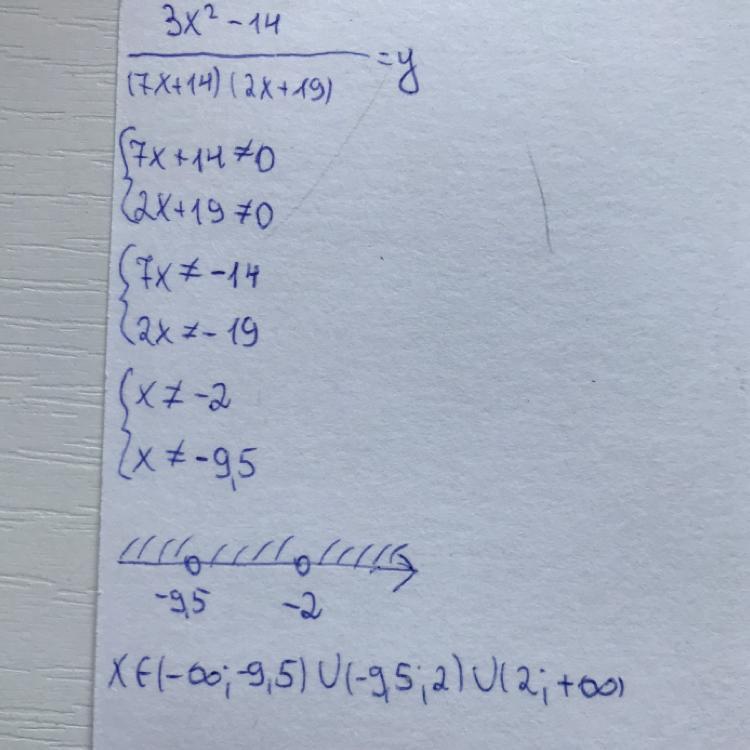 3x² - 14
(7x+14)(2x+19) = y
{7x+14≠0
2x+19≠0
{7x≠-14
2x≠-19
{x≠-2
x≠-9,5
-9,5 -2
x∈(-∞;-9,5)∪(-9,5;2)∪(2;+∞)